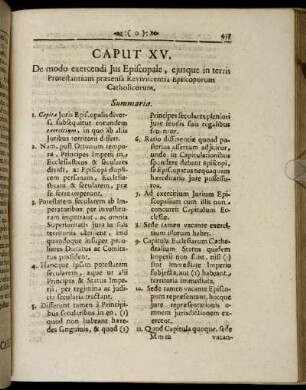 ( o )
CAPUT XV.
De modo exercendi Jus Episcopale, ejusque in terris
Protestantium prætensâ Reviviscentiâ Episcoporum
Catholicorum.
Summaria.
1. Capita Juris Episcopalis diver-
sa subsequitur eorundem
exercitium, in quo ab aliis
Juribus territorii differt.
2. Nam, post Ottonum tempo-
ra, Principes Imperii in
Ecclesiasticos & seculares
divisi, ac Episcopi dupli-
cem personam Ecclesi-
asticam & secularem, præ
se ferre coeperunt.
3. Potestatem secularem ab Im-
peratoribus per investitu-
ram impetrant, ac omnia
Superioritatis jura in suis
territoriis obtinent, ind
quandoque insuper pe-
lusmus Ducatus ac Comita-
tus possident.
4. Hancque ipsam potestatem
secularem, æque ut alii
Principes & Status Impe-
rii, per regimina ac judi-
cia secularia tractant.
5. Differunt tamen à Principi-
bus secularibus in eo, (1)
quod non habeant hære-
des sanguinis, & quod (2)
Principes seculares pleniori
jure feudis suis regalibus
fruuntur.
6. Ratio differentiæ quoad po-
sterius assertum adjicitur,
unde in Capitulationibus
spondere debent Episco-
pi, Episcopatus nequaquam
hæreditario jure possessu-
ros.
7. Ad exercitium Jurium Epi-
scopalium cum illis non
concurrit Capitulum Ec-
clesiæ.
8. Sede tamen vacante exerci-
tium illorum habet.
9. Capitula Ecclesiarum Cathe-
dralium Status quidem
Imperii non sunt, nisi (1)
sint immediate Imperio
subjecta, aut (2) habeant
territoria immediata.
10. Sede tamen vacante Episco-
pum repræsentant, hocque
jure repræsentationis o-
mnem jurisdictionem ex-
ercent.
11. Quod Capitula quoque, sede
Mmm
vacan-